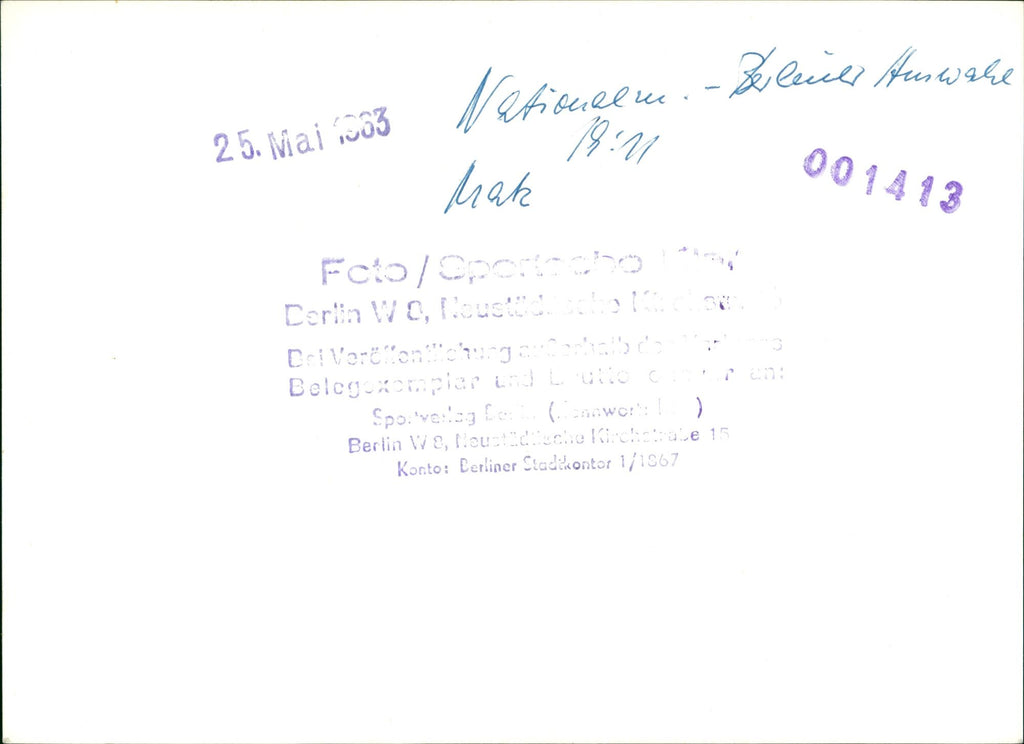 25. Mai 1963
Nationalm. - Berliner Auswahl
19:11
001413
Foto / Sportecho
Berlin W 8, Neustädtische
Bei Veröffentlichung außerhalb des
Belegexemplar und an:
Sportverlag Berlin (Kennwort: )
Berlin W 8, Neustädtische Kirchstraße 15
Konto: Berliner Stadtkontor 1/1867